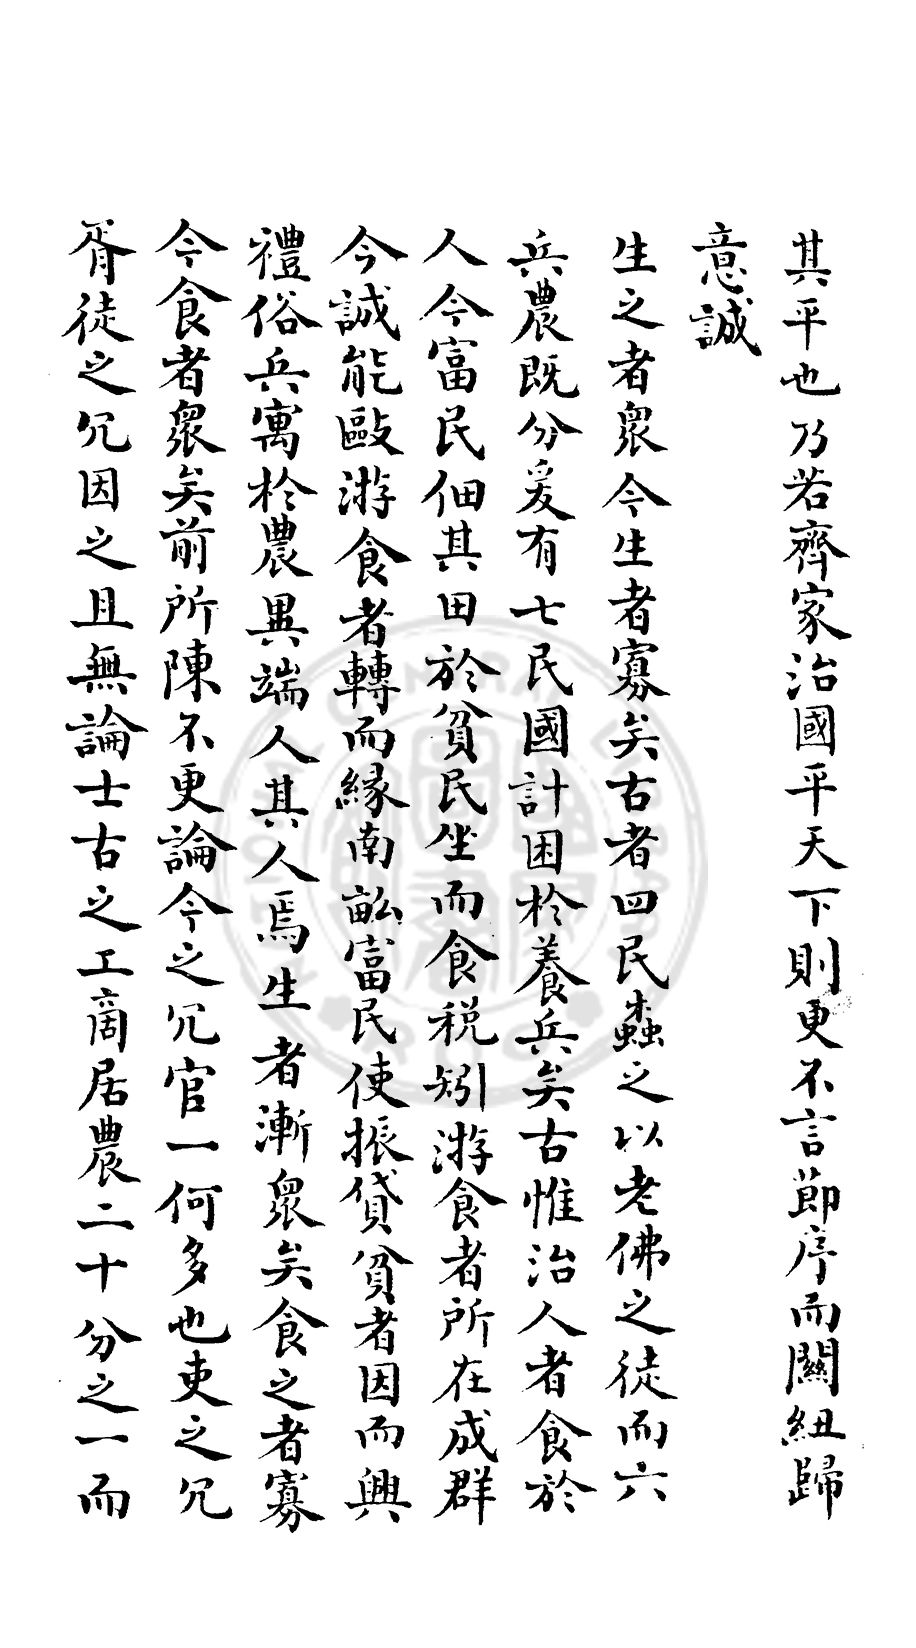 其平也乃若齊家治國平天下則更不言節序而關紐歸
意誠
生之者衆今生者寡矣古者四民蠹之以老佛之徒而六
兵農既分爰有七民國計困於養兵矣古惟治人者食於
人今富民佃其田於貧民坐而食稅矧游食者所在成群
今誠能敺游食者轉而緣南畝富民使振貸貧者因而興
禮俗兵寓於農異端人其人焉生者漸衆矣食之者寡
今食者衆矣前所陳不更論今之冗官一何多也吏之冗
胥徒之冗因之且無論士古之工商居農二十分之一而